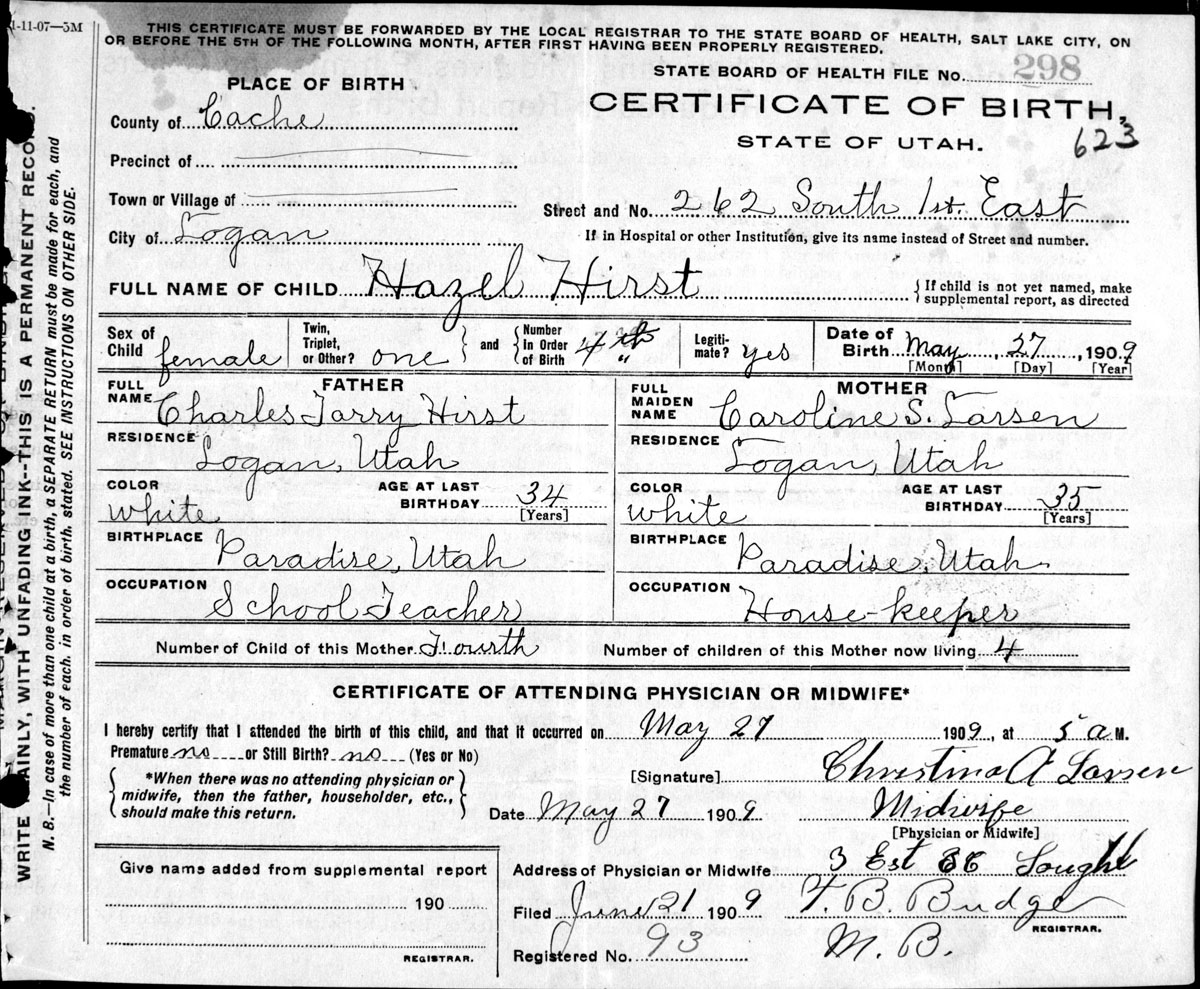 1-11-07—5M
THIS CERTIFICATE MUST BE FORWARDED BY THE LOCAL REGISTRAR TO THE STATE BOARD OF HEALTH, SALT LAKE CITY, ON
OR BEFORE THE 5TH OF THE FOLLOWING MONTH, AFTER FIRST HAVING BEEN PROPERLY REGISTERED.
STATE BOARD OF HEALTH FILE No. 298
PLACE OF BIRTH
CERTIFICATE OF BIRTH,
County of Cache
STATE OF UTAH. 623
Precinct of
Town or Village of
Street and No. 262 South 1st. East
City of Logan
If in Hospital or other Institution, give its name instead of Street and number.
FULL NAME OF CHILD Hazel Hirst
{If child is not yet named, make
supplemental report, as directed
Sex of Child female
Twin, Triplet, or Other? one } and { Number In Order of Birth 4 th "
Legiti-mate? yes
Date of Birth May, 27, 1909
[Month] [Day] [Year]
FATHER
FULL NAME Charles Tarry Hirst
MOTHER
FULL MAIDEN NAME Caroline S. Larsen
RESIDENCE Logan, Utah
RESIDENCE Logan, Utah
COLOR white AGE AT LAST BIRTHDAY 34 [Years]
COLOR white AGE AT LAST BIRTHDAY 35 [Years]
BIRTHPLACE Paradise, Utah
BIRTHPLACE Paradise, Utah
OCCUPATION School Teacher
OCCUPATION House-keeper
Number of Child of this Mother Fourth Number of children of this Mother now living 4
CERTIFICATE OF ATTENDING PHYSICIAN OR MIDWIFE*
I hereby certify that I attended the birth of this child, and that it occurred on May 27 1909, at 5 a M.
Premature no or Still Birth? no (Yes or No)
*When there was no attending physician or
midwife, then the father, householder, etc.,
should make this return.
[Signature] Christina A Larsen
Date May 27 1909 Midwife
[Physician or Midwife]
Give name added from supplemental report
190
REGISTRAR.
Address of Physician or Midwife 3 Est
Filed June 21 1909 T. B. Budge
REGISTRAR.
Registered No. 93 M. B.
WRITE AINLY, WITH UNFADING INK--THIS IS A PERMANENT RECO
N. B.—In case of more than one child at a birth, a SEPARATE RETURN must be made for each, and
the number of each, in order of birth, stated. SEE INSTRUCTIONS ON OTHER SIDE.